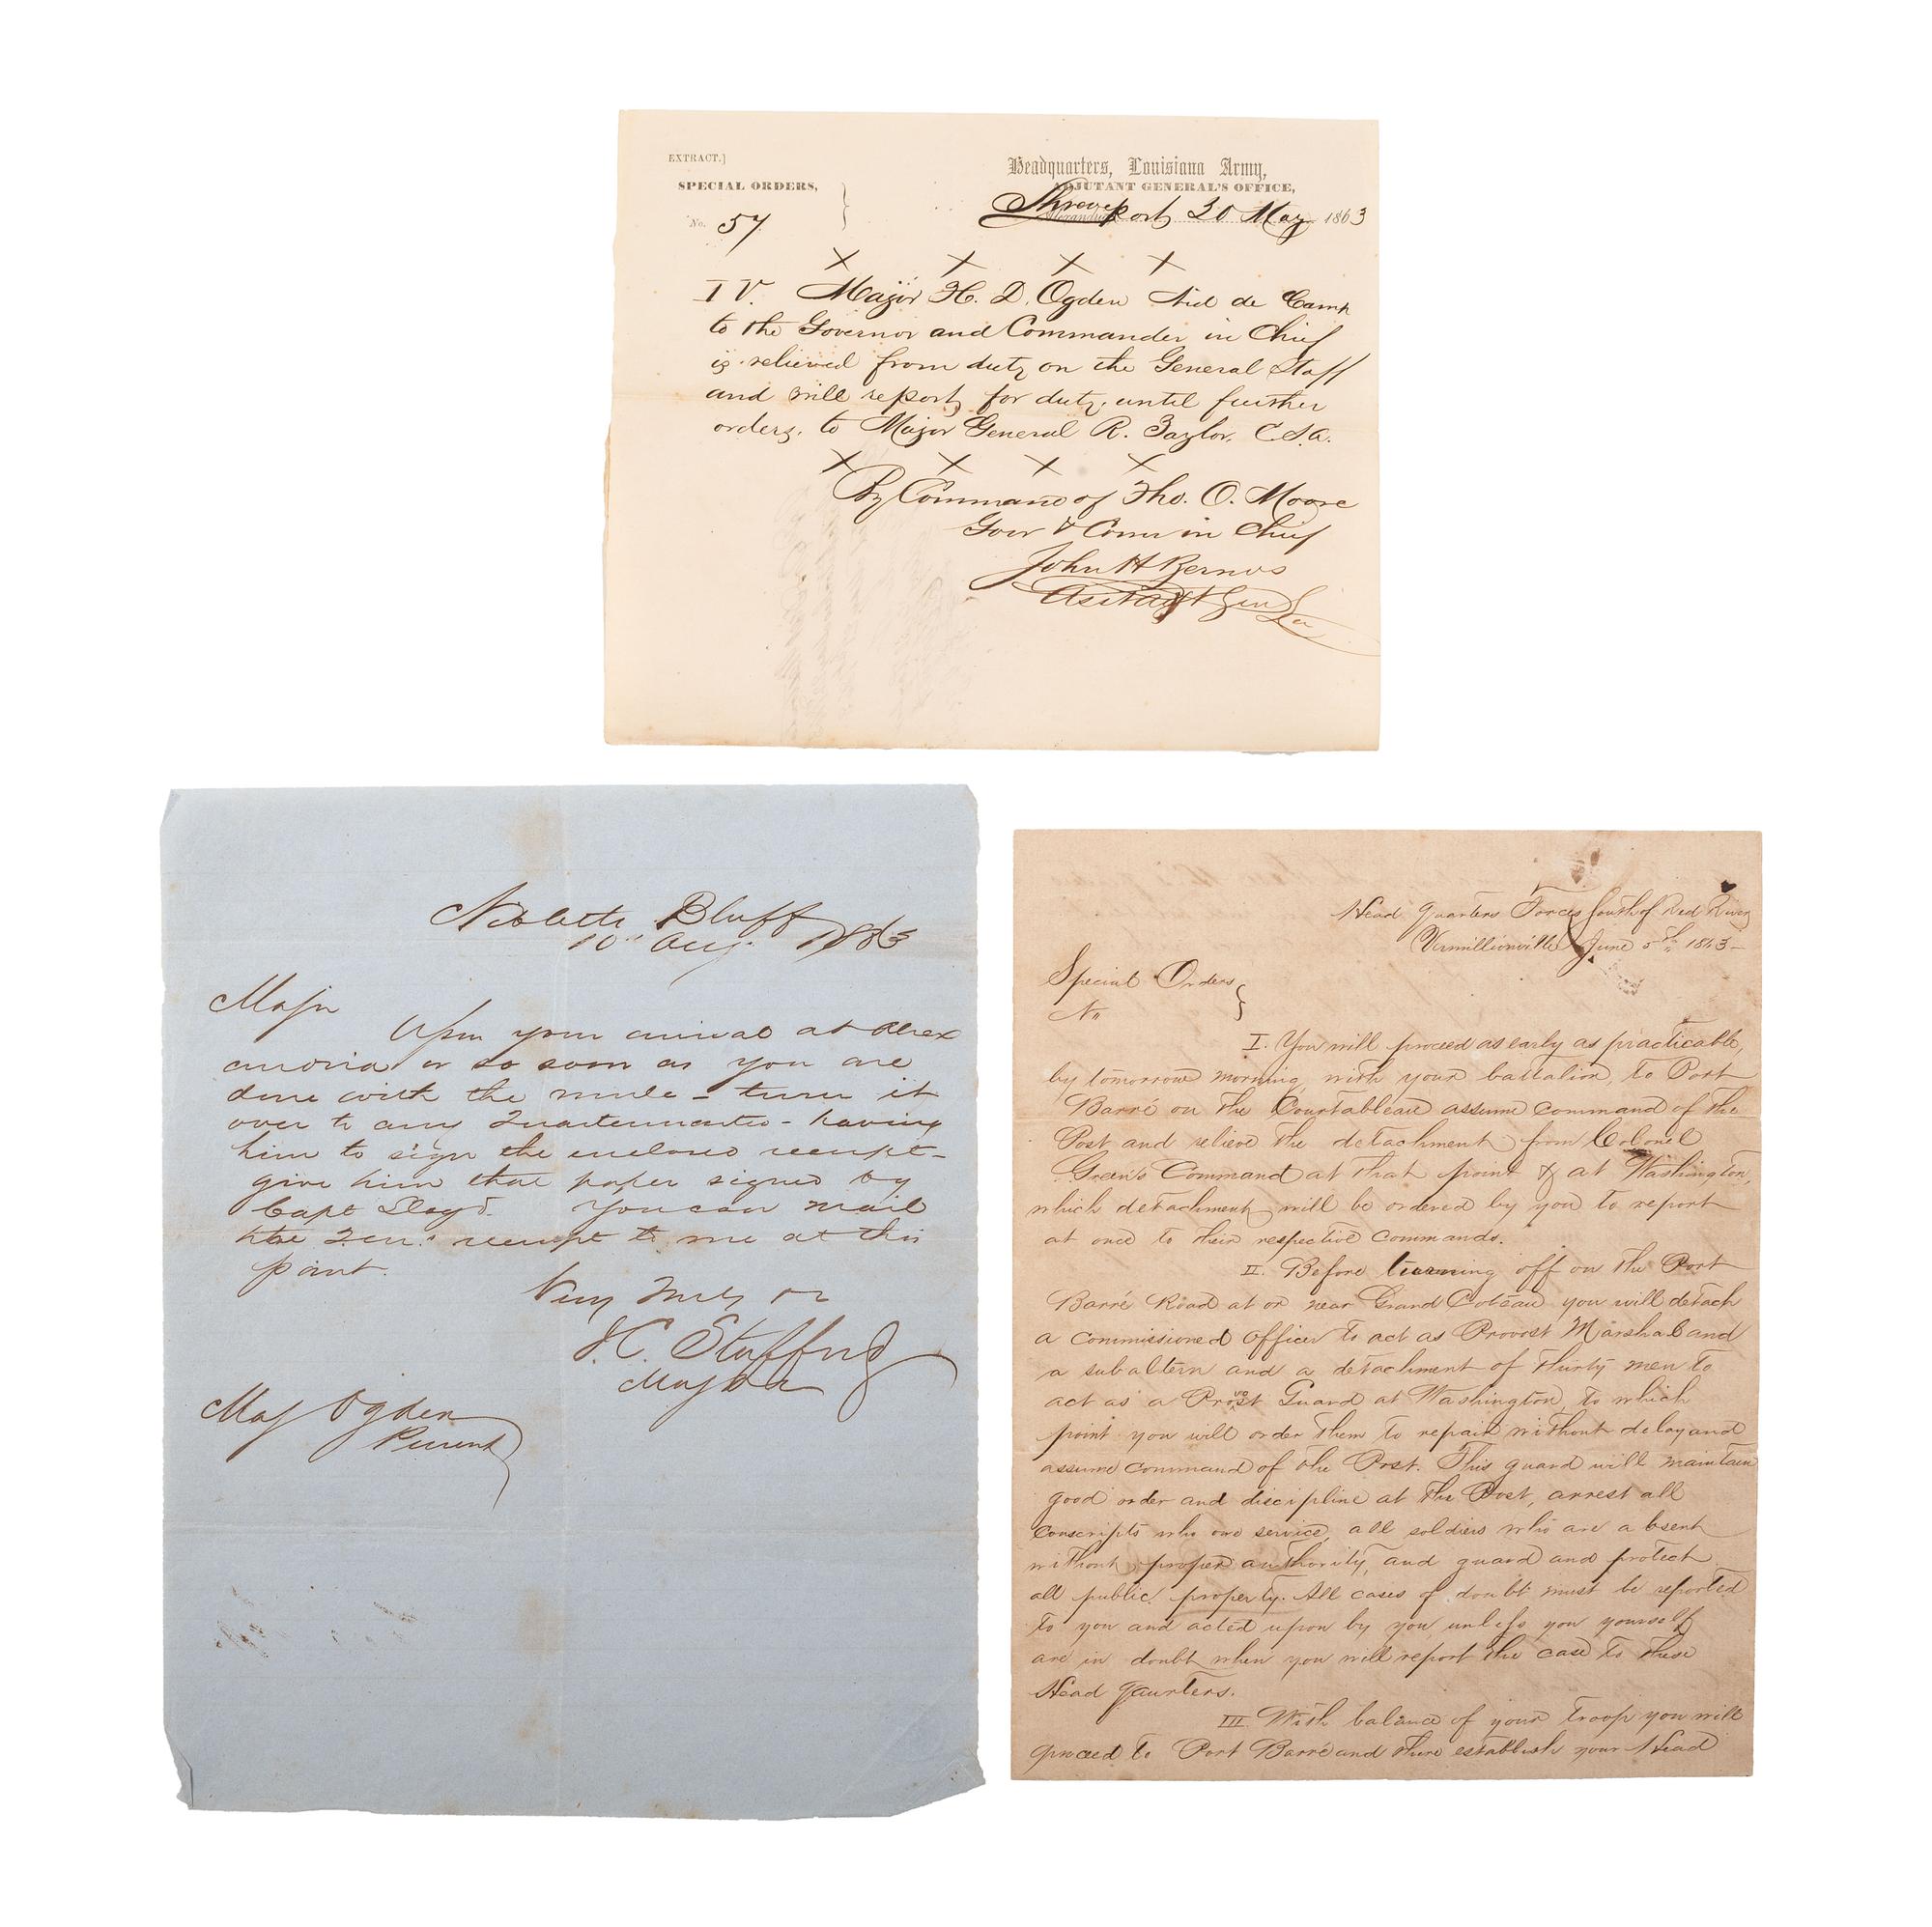 EXTRACT.}
SPECIAL ORDERS, }
No. 57
Headquarters, Louisiana Army,
ADJUTANT GENERAL'S OFFICE,
Shreveport 30 May 1863
X X X X
IV. Major H. D. Ogden Aid de Camp
to the Governor and Commander in Chief
is relieved from duty on the General Staff
and will report, for duty, until further
orders, to Major General R. Taylor, C.S.A.
X X X X
By Command of Tho. O. Moore
Gov & Com in Chief
John H
Gen La
Nibletts Bluff
10" Aug. 1863
Major
Upon your arrival at Alex
andria or so soon as you are
done with the mule - turn it
over to any Quartermaster - having
him to sign the enclosed receipt -
give him that paper signed by
Capt Lloyd. You can mail
the receipt to me at this
point.
Very
Stafford
Maj
Maj Ogden
Present
Head Quarters Forces South of Red River
Vermillionville June 5th 1863 -
Special Orders }
No "
I. You will proceed as early as practicable,
by tomorrow morning, with your battalion, to Port
Barré on the Courtableau assume command of the
Post and relieve the detachment from Colonel
Green's Command at that point & at Washington,
which detachment will be ordered by you to report
at once to their respective commands.
II. Before turning off on the Port
Barré Road at or near Grand Coteau you will detach
a commissioned Officer to act as Provost Marshal and
a subaltern and a detachment of thirty men to
act as a Provost Guard at Washington, to which
point you will order them to repair without delay and
assume command of the Post. This guard will maintain
good order and discipline at the Post, arrest all
Conscripts who owe service, all soldiers who are absent
without proper authority, and guard and protect
all public property. All cases of doubt must be reported
to you and acted upon by you unless you yourself
are in doubt when you will report the case to these
Head Quarters.
III With balance of your troop you will
proceed to Port Barré and there establish your Head